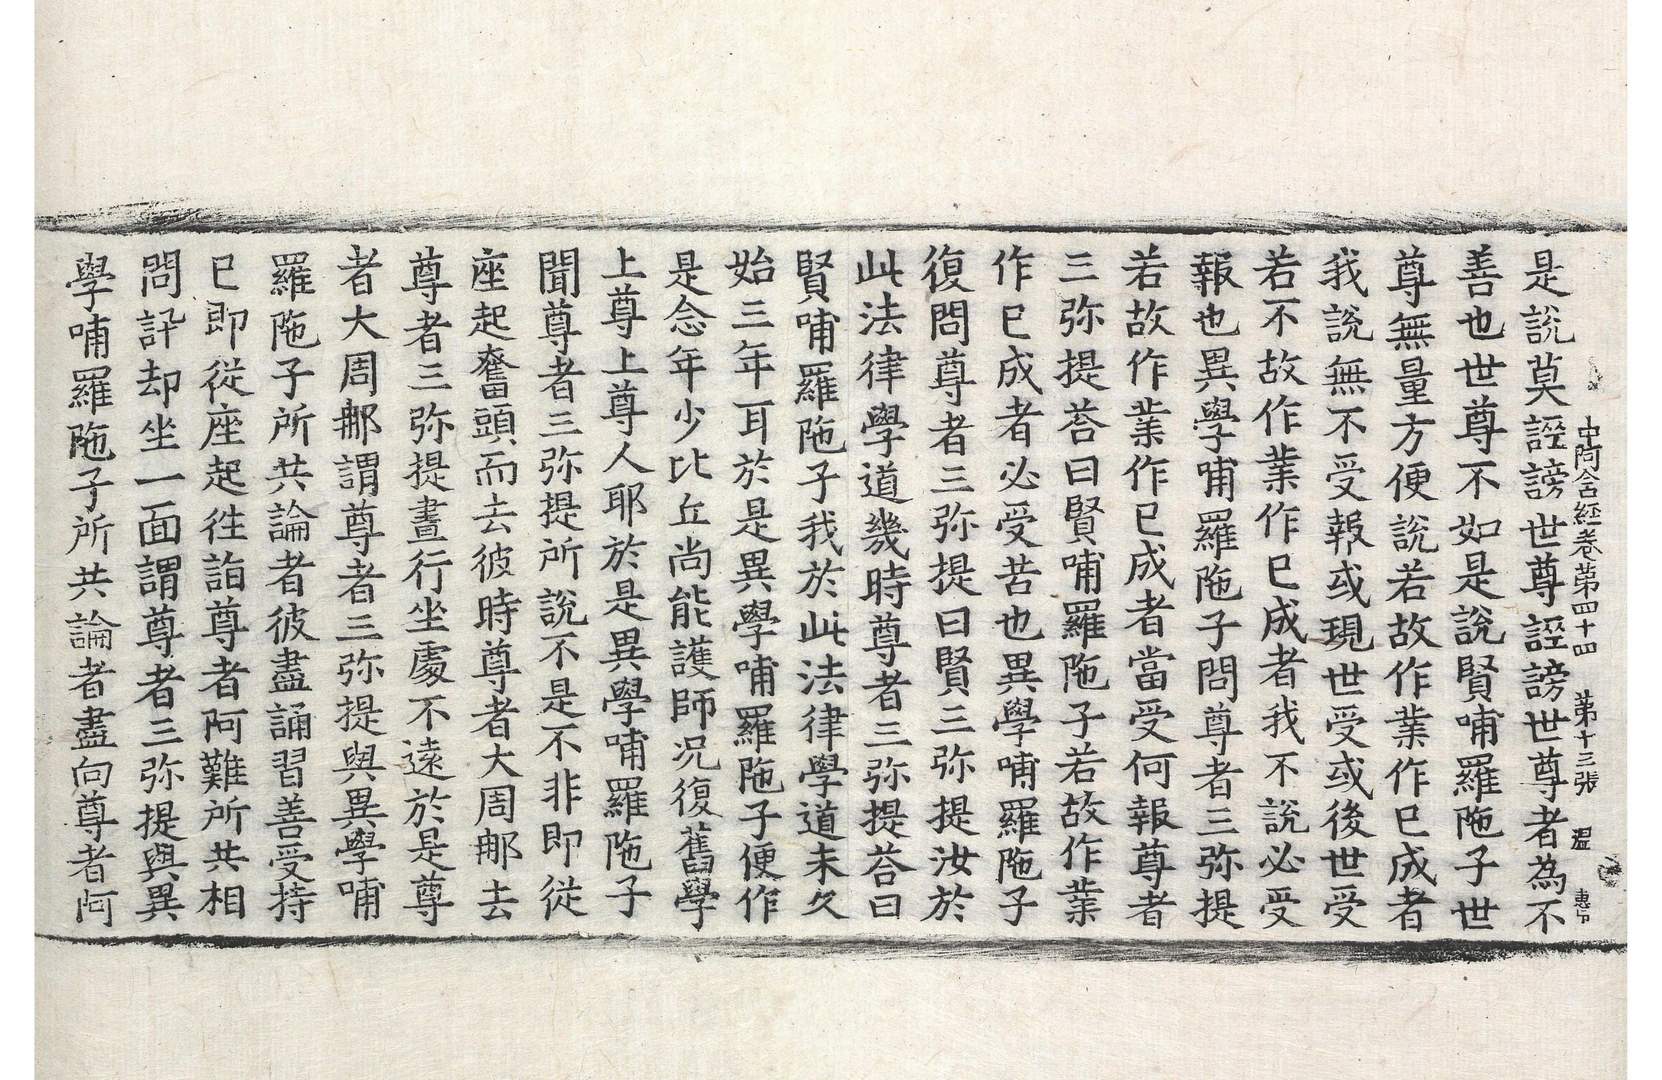 中阿含經卷第四十四　第十三張　溫　惠守
是說莫誣謗世尊誣謗世尊者為不
善也世尊不如是說賢哺羅陁子世
尊無量方便說若故作業作已成者
我說無不受報或現世受或後世受
若不故作業作已成者我不說必受
報也異學哺羅陁子問尊者三弥提
若故作業作已成者當受何報尊者
三弥提荅曰賢哺羅陁子若故作業
作已成者必受苦也異學哺羅陁子
復問尊者三弥提曰賢三弥提汝於
此法律學道幾時尊者三弥提荅曰
賢哺羅陁子我於此法律學道未久
始三年耳於是異學哺羅陁子便作
是念年少比丘尚能護師況復舊學
上尊上尊人耶於是異學哺羅陁子
聞尊者三弥提所說不是不非即從
座起奮頭而去彼時尊者大周那去
尊者三弥提晝行坐處不遠於是尊
者大周那謂尊者三弥提與異學哺
羅陁子所共論者彼盡誦習善受持
已即從座起往詣尊者阿難所共相
問訊却坐一面謂尊者三弥提與異
學哺羅陁子所共論者盡向尊者阿